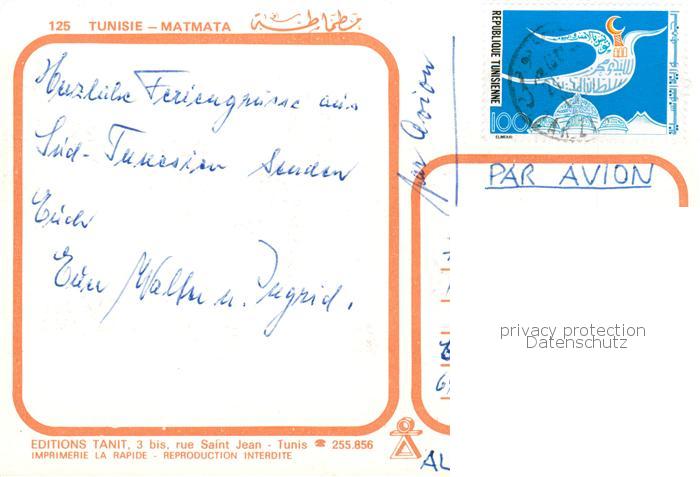 125 TUNISIE – MATMATA مطماطة
Herzliche Feriengrüsse aus
Süd-Tunesien senden
Euch
Euer Walter u. Ingrid.
par Avion
REPUBLIQUE TUNISIENNE
100
ELMEKKI
PAR AVION
privacy protection
Datenschutz
EDITIONS TANIT, 3 bis, rue Saint Jean - Tunis ☎ 255.856
IMPRIMERIE LA RAPIDE - REPRODUCTION INTERDITE
AL